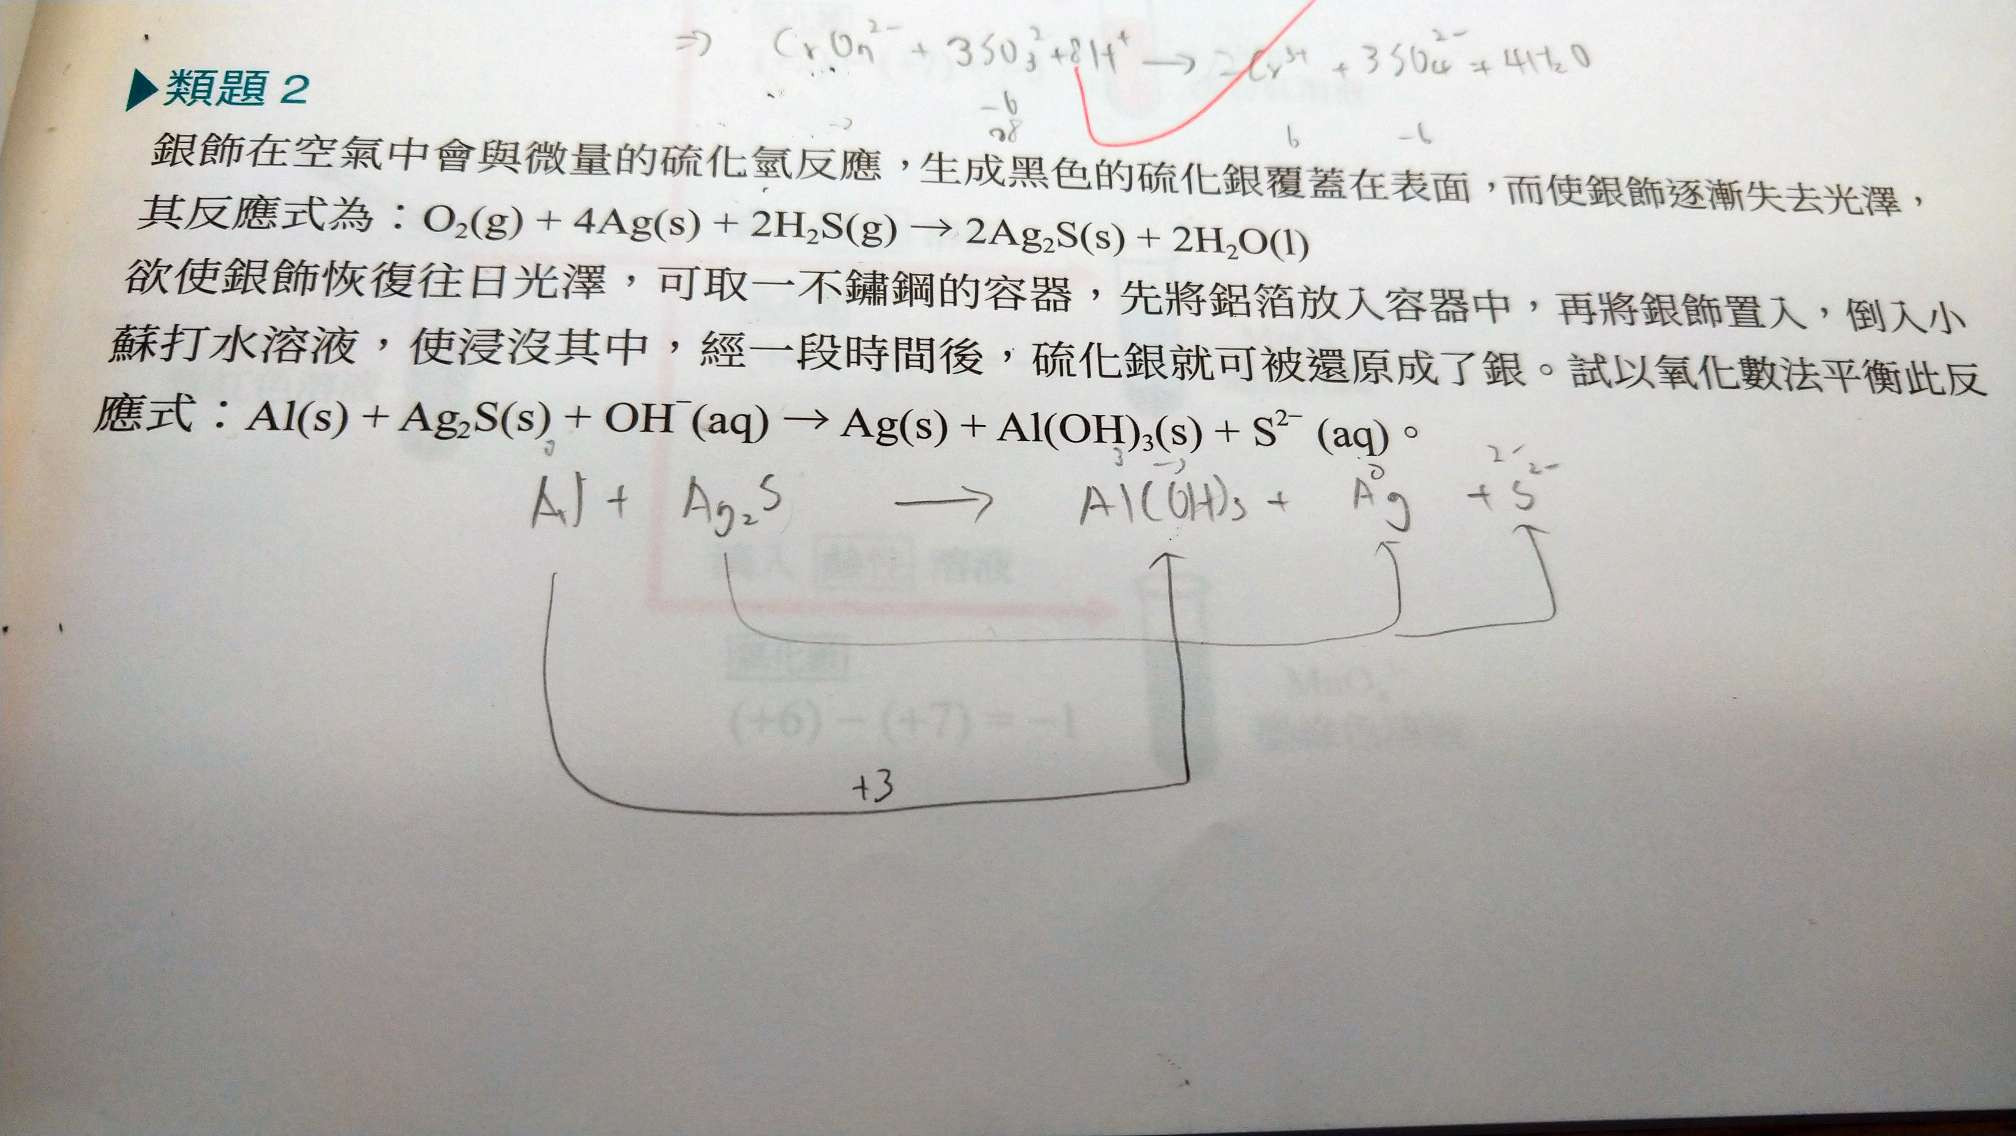 ⇒ CrOn²⁻ + 3SO₃² + 8H⁺ → 2Cr³⁺ + 3SO₄²⁻ + 4H₂O
-6
6 -6
▶類題 2
銀飾在空氣中會與微量的硫化氫反應，生成黑色的硫化銀覆蓋在表面，而使銀飾逐漸失去光澤，
其反應式為：O₂(g) + 4Ag(s) + 2H₂S(g) → 2Ag₂S(s) + 2H₂O(l)
欲使銀飾恢復往日光澤，可取一不鏽鋼的容器，先將鋁箔放入容器中，再將銀飾置入，倒入小
蘇打水溶液，使浸沒其中，經一段時間後，硫化銀就可被還原成了銀。試以氧化數法平衡此反
應式：Al(s) + Ag₂S(s) + OH⁻(aq) → Ag(s) + Al(OH)₃(s) + S²⁻ (aq)。
0 3 0 2-
Al + Ag₂S → Al(OH)₃ + Ag + S²⁻
溶液
(+6) − (+7) = −1
+3